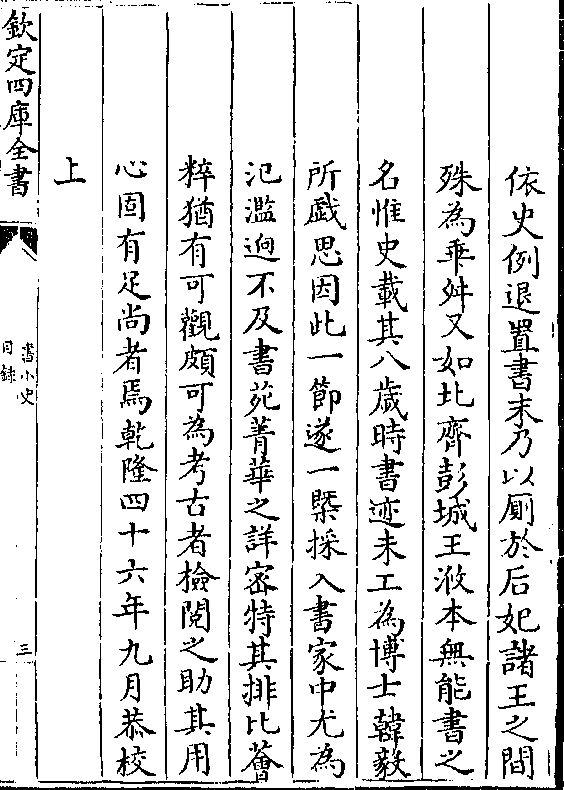 依史例退置書末乃以厠於后妃諸王之間
殊為乖舛又如北齊彭城王浟本無能書之
名惟史載其八歳時書迹未工為博士韓毅
所戯思因此一節遂一槩採入書家中尤為
氾濫逈不及書苑菁華之詳密特其排比薈
粹猶有可觀頗可為考古者檢閱之助其用
心固有足尚者焉乾隆四十六年九月恭校
上
欽定四庫全書
書小史
目録
三